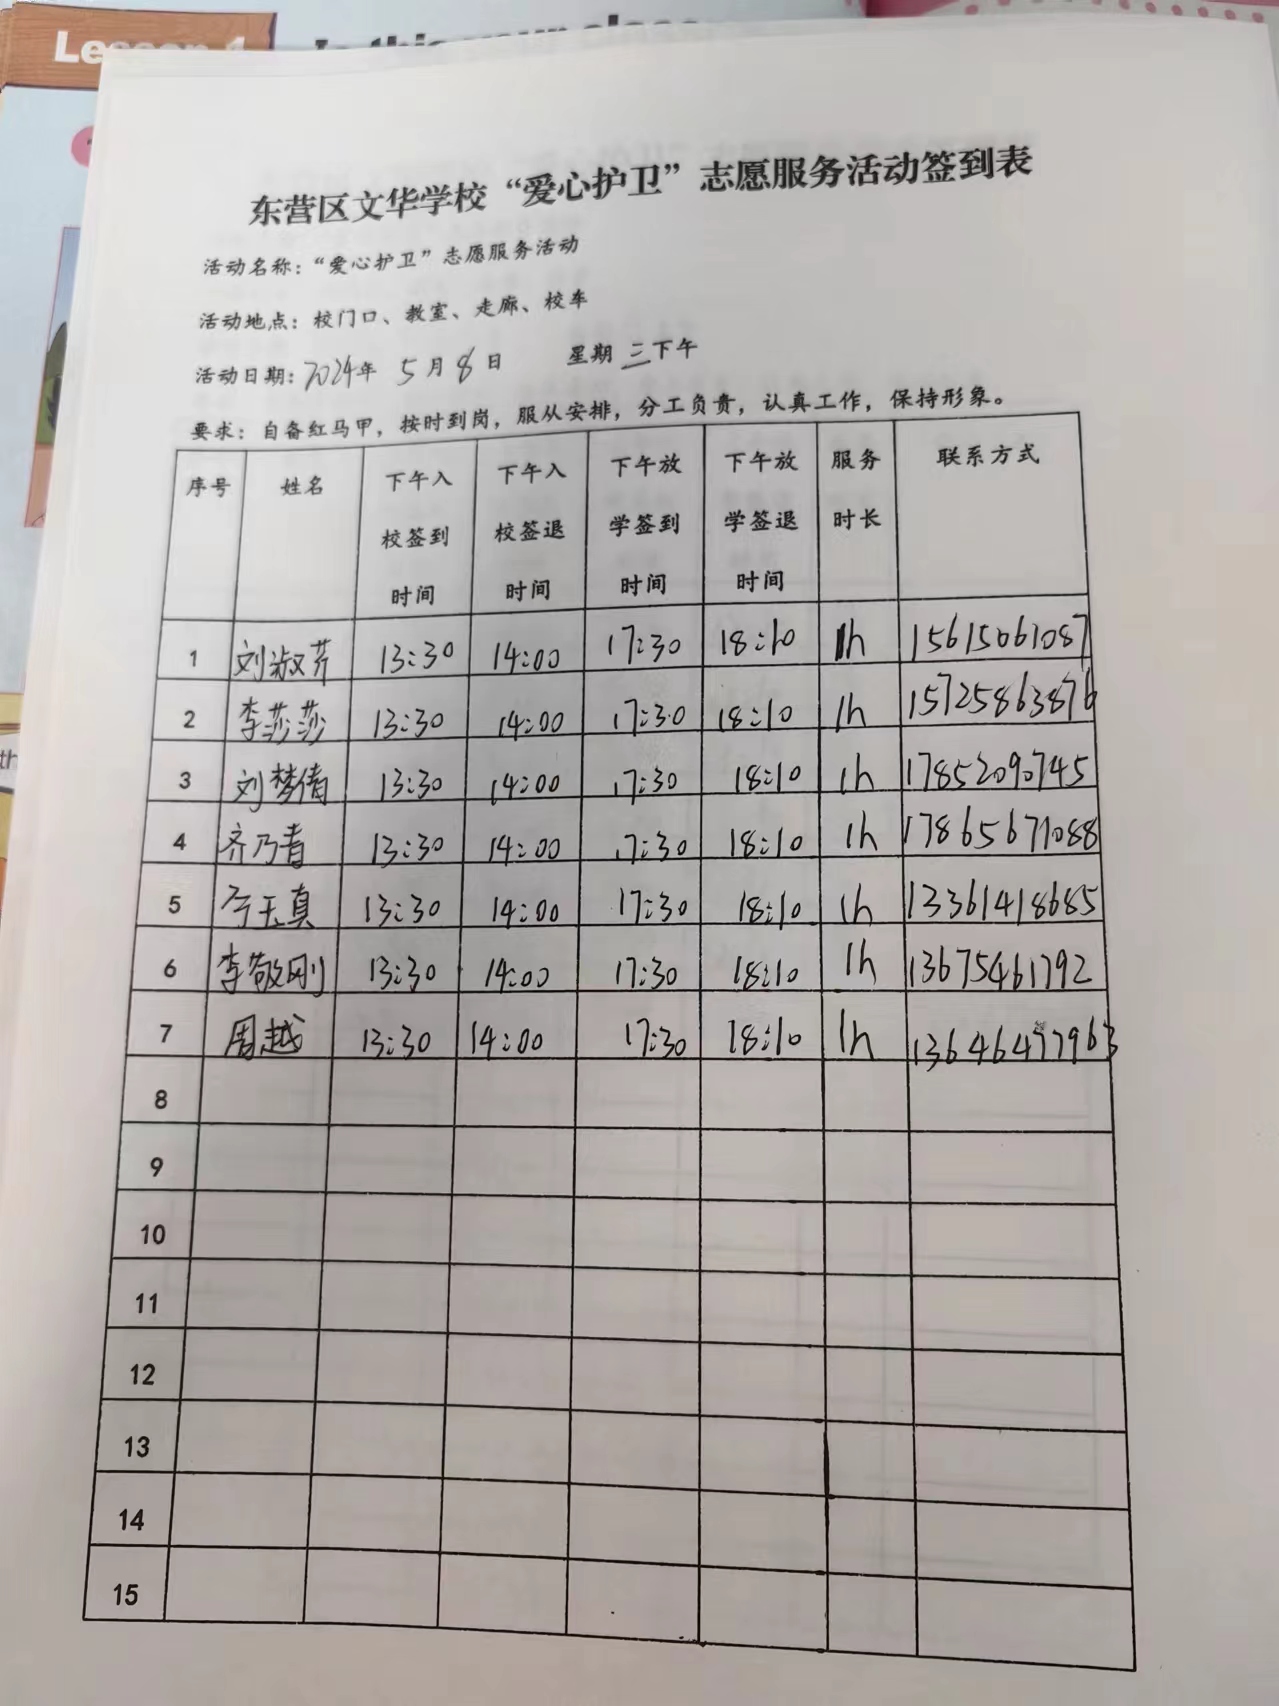 Lesson 1 Is this your class
东营区文华学校“爱心护卫”志愿服务活动签到表
活动名称：“爱心护卫”志愿服务活动
活动地点：校门口、教室、走廊、校车
活动日期：2024年 5月8日 星期三下午
要求：自备红马甲，按时到岗，服从安排，分工负责，认真工作，保持形象。
序号 姓名 下午入校签到时间 下午入校签退时间 下午放学签到时间 下午放学签退时间 服务时长 联系方式
1 刘淑芹 13:30 14:00 17:30 18:10 1h 15615061087
2 李莎莎 13:30 14:00 17:30 18:10 1h 15725863876
3 刘梦倩 13:30 14:00 17:30 18:10 1h 17852090745
4 齐乃青 13:30 14:00 17:30 18:10 1h 17865671088
5 玉真 13:30 14:00 17:30 18:10 1h 13361418685
6 李敬刚 13:30 14:00 17:30 18:10 1h 13675461792
7 周越 13:30 14:00 17:30 18:10 1h
8
9
10
11
12
13
14
15